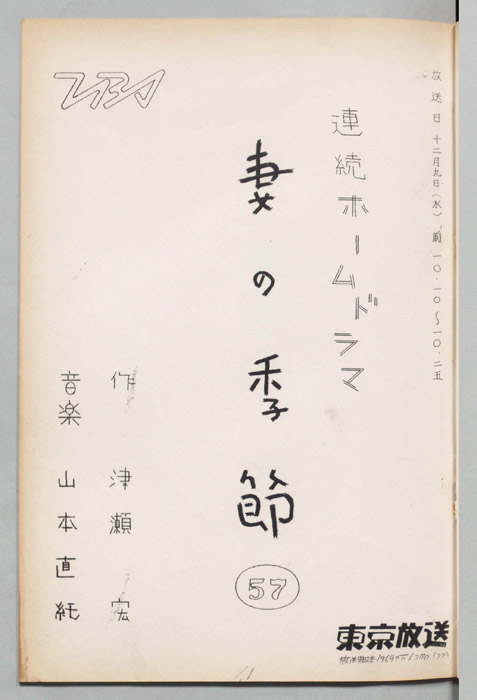 放送日 十二月九日（水） 前 一〇・一〇〜一〇・二五
連続ホームドラマ
妻の季節
57
作 津瀬 宏
音楽 山本直純
東京放送